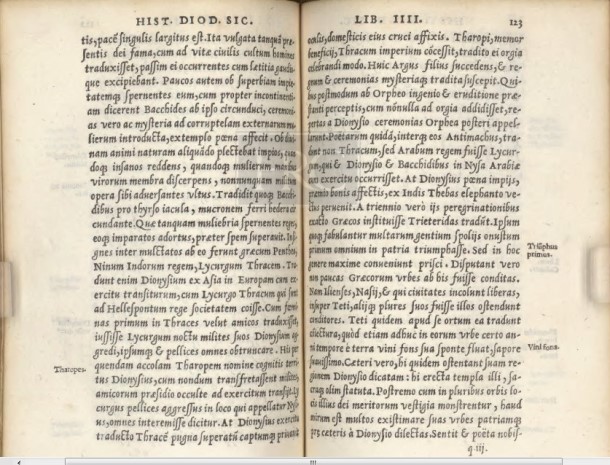 HIST. DIOD. SIC.
tis, pacē singulis largitus est. Ita vulgata tanquā præ
sentis dei fama, cum ad vitæ ciuilis cultum homines
traduxisset, passim ei occurrentes cum lætitia gaudio
que excipiebant. Paucos autem ob superbiam impie
tatemq́; spernentes eum, cum propter incontinenti-
am dicerent Bacchides ab ipso circunduci, ceremoni
as vero ac mysteria ad corruptelam externarum mu
lierum introducta, extemplo pœna affecit. Ob
nam animi naturam aliquādo plectebat impios,
doq́; insanos reddens, quandoq́; mulierum manibus
virorum membra discerpens, nonnunquam militum
opera sibi aduersantes vltus. Tradidit quoq; Bacchi
dibus pro thyrso iacula, mucronem ferri hedera
cundante. Que tanquam muliebria spernentes reges,
eoq́; imparatos adortus, præter spem superauit. Insi
gnes inter mulctatos ab eo ferunt græcum Pentheū,
Ninum Indorum regem, Lycurgum Thracem. Tra
dunt enim Dionysium ex Asia in Europam cum ex
ercitu transiturum, cum Lycurgo Thracum qui sunt
ad Hellespontum rege societatem coisse. Cum fœmi
nas primum in Thraces velut amicos traduxisset,
iussisse Lycurgum noctu milites suos Dionysium ag
gredi, ipsumq́; & pellices omnes obtruncare. His per
Tharopes.
quendam accolam Tharopem nomine cognitis territus
Dionysius, cum nondum transfretassent milites,
amicorum præsidio occulte ad exercitum transijt. Ly
curgus pellices aggressus in loco qui appellatur Nysi
us, omnes interemisse dicitur. At Dionysius exercitu
traducto Thracē pugna superatū captumq́;
LIB. IIII. 123
oculis, domesticis eius cruci affixis. Tharopi, memor
beneficij, Thracum imperium cōcessit, tradito ei orgia
celebrandi modo. Huic Argus filius succedens, & re-
gnum & ceremonias mysteriaq́; tradita suscepit. Qui-
bus postmodum ab Orpheo ingenio & eruditione præ-
stanti perceptis, cum nōnulla ad orgia addidisset, re-
pertas a Dionysio ceremonias Orphea posteri appel-
larunt. Poëtarum quidā, interq́; eos Antimachus, tra-
dunt non Thracum, sed Arabum regem fuisse Lycur-
gum, qui & Dionysio & Bacchidibus in Nysa Arabiæ
cum exercitu occurrisset. At Dionysius pœna impijs,
præmio bonis affectis, ex Indis Thebas elephanto ve-
ctus peruenit. A triennio vero ijs peregrinationibus
exacto Græcos instituisse Trieteridas tradūt. Ipsum
quoq; fabulantur multarum gentium spolijs onustum
primum omnium in patria triumphasse. Sed in hoc
Triūphus
primus.
genere maxime conueniunt prisci. Disputant vero
non paucas Græcorum vrbes ab his fuisse conditas.
Nam Ilienses, Naſij, & qui ciuitates incolunt liberas,
insuper Teti, alijq́; plures suos fuisse illos ostendunt
conditores. Teti quidem apud se ortum ea tradunt
coniectura, quòd etiam adhuc in eorum vrbe certo an-
Vini fons.
ni tempore è terra vini fons sua sponte fluat, sapore
suauissimo. Cæteri vero, hi quidem ostentant suam re-
gionem Dionysio dicatam: hi erecta templa illi, sa-
craq́; olim statuta. Postremo cum in pluribus orbis lo-
cis illius dei meritorum vestigia monstrentur, haud
mirum est multos existimare suas vrbes patriamq́;
præ ceteris à Dionysio dilectas. Sentit & poëta nobis-
q.iij.